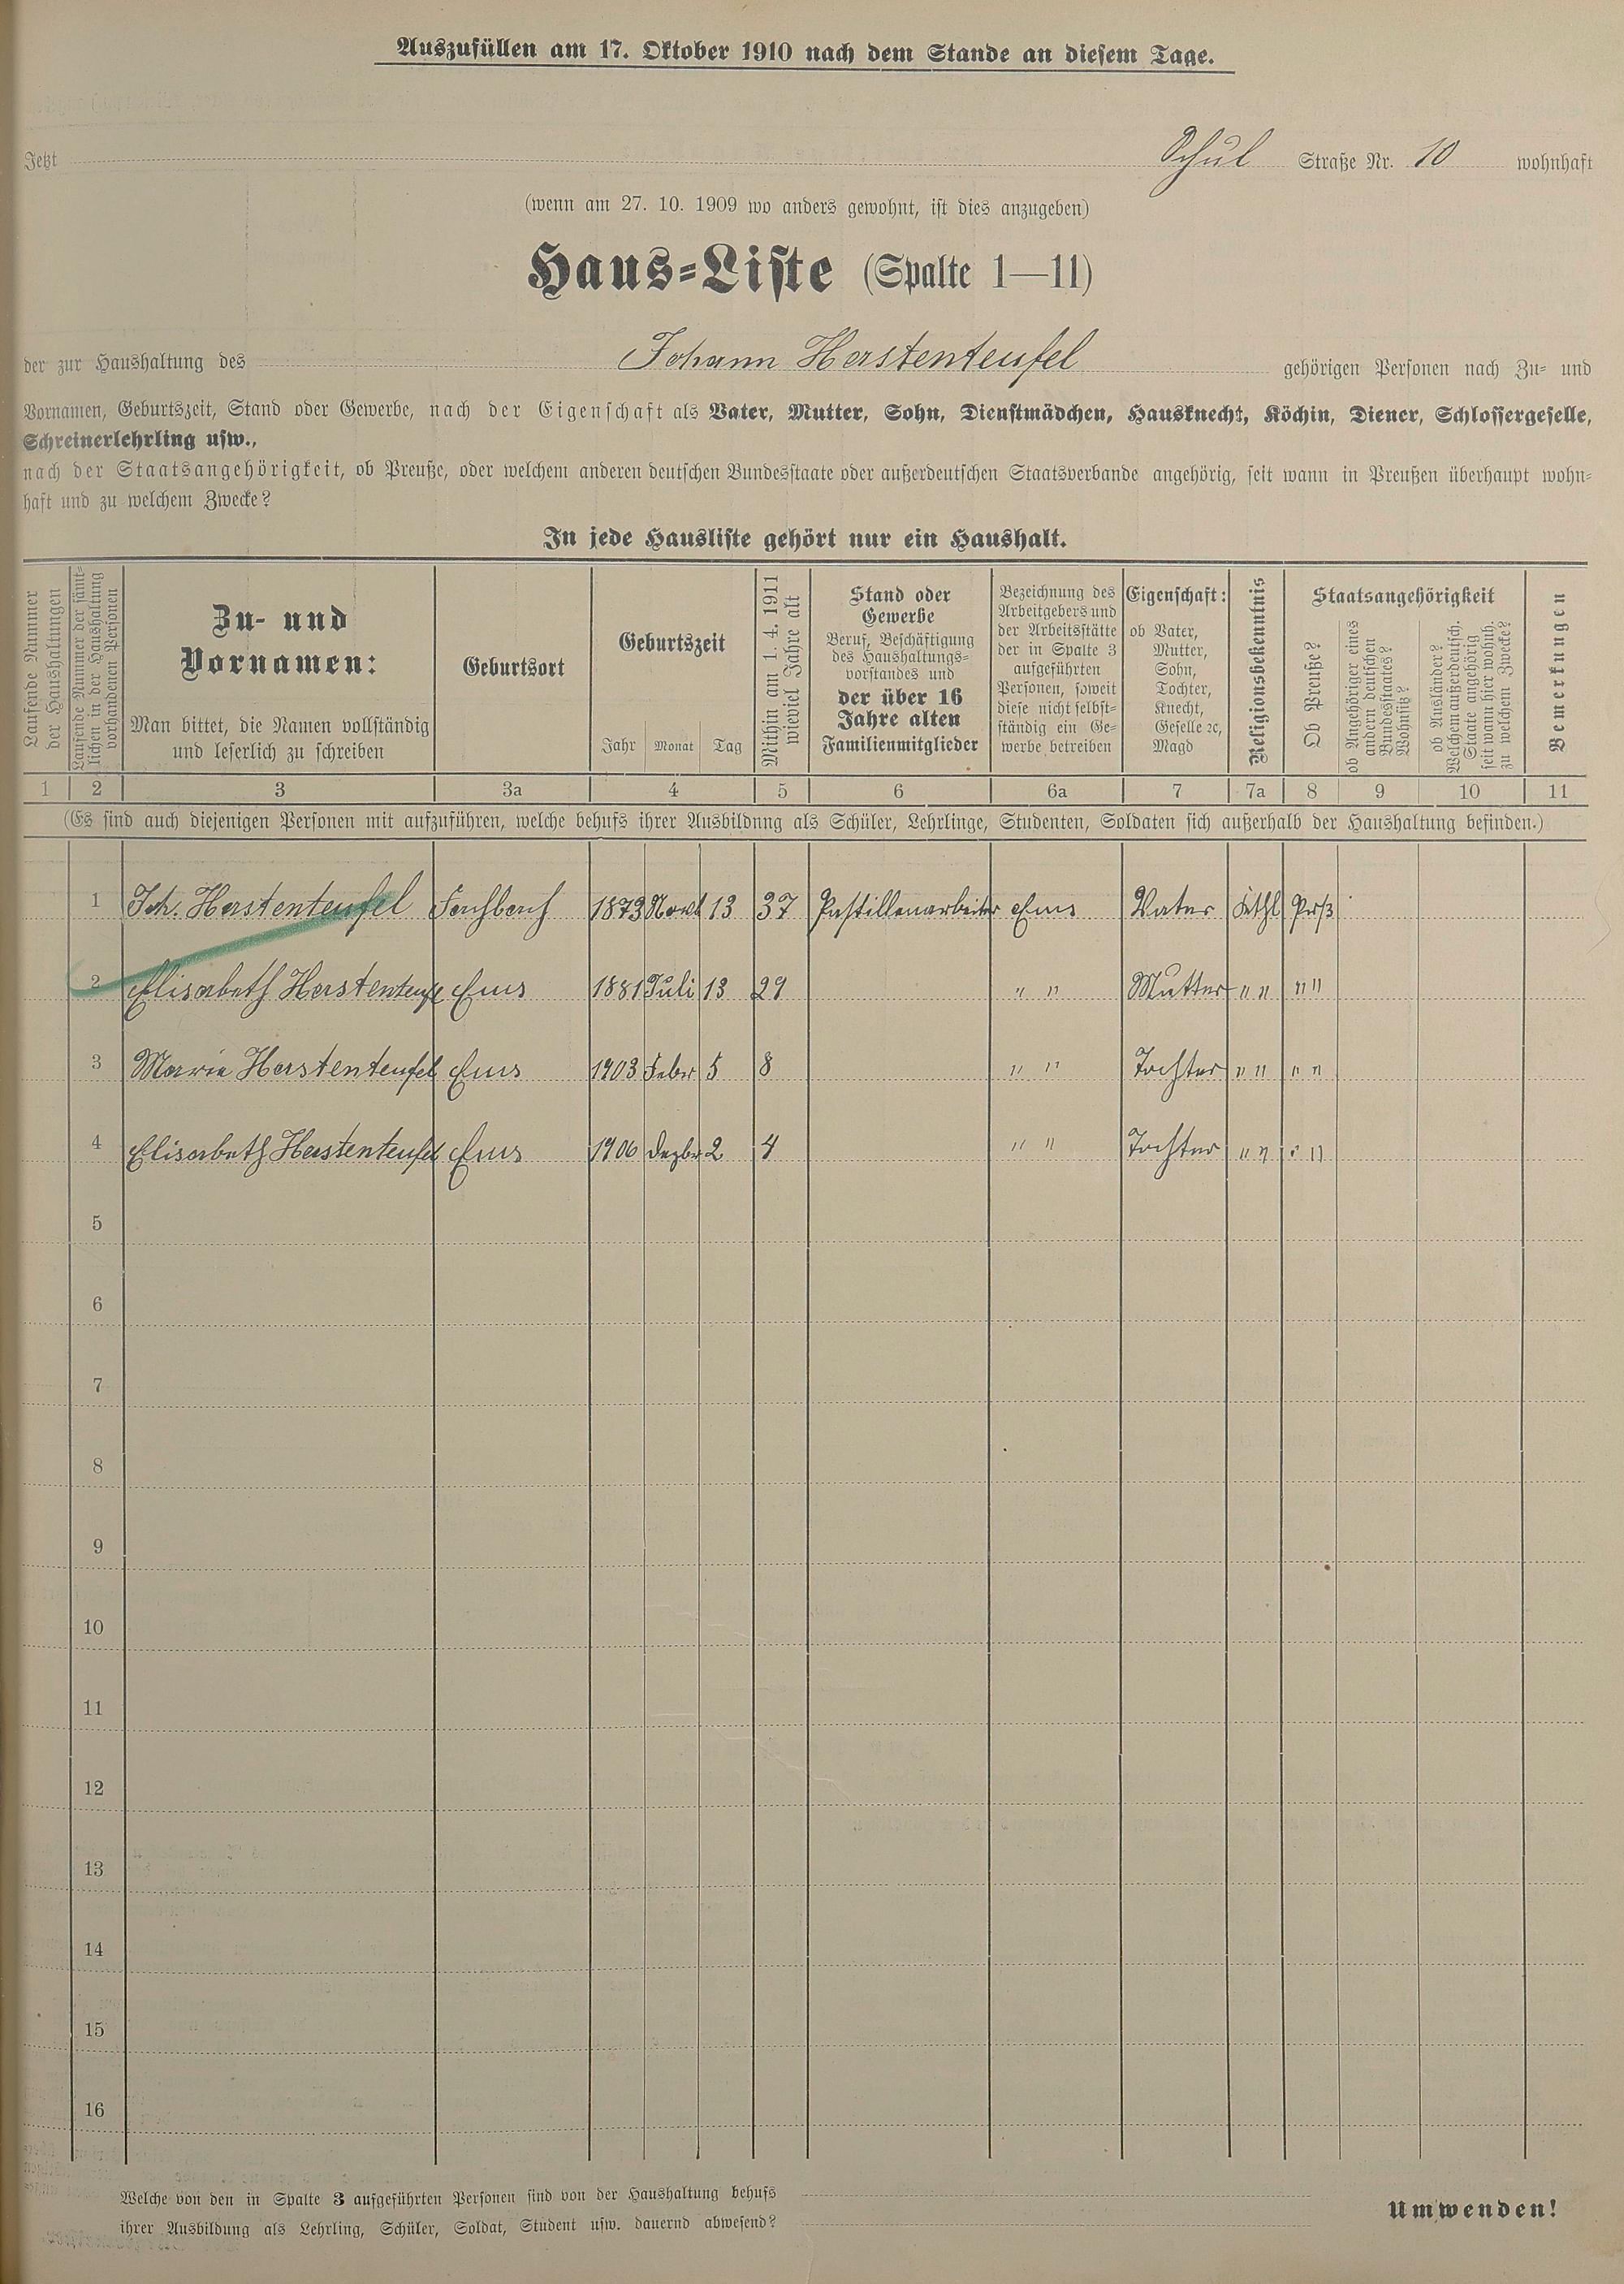 Auszufüllen am 17. Oktober 1910 nach dem Stande an diesem Tage.
Jetzt Schul Straße Nr. 10 wohnhaft
(wenn am 27. 10. 1909 wo anders gewohnt, ist dies anzugeben)
Haus-Liste (Spalte 1—11)
der zur Haushaltung des Johann Herstenteufel gehörigen Personen nach Zu- und
Vornamen, Geburtszeit, Stand oder Gewerbe, nach der Eigenschaft als Vater, Mutter, Sohn, Dienstmädchen, Hausknecht, Köchin, Diener, Schlossergeselle,
Schreinerlehrling usw.,
nach der Staatsangehörigkeit, ob Preuße, oder welchem anderen deutschen Bundesstaate oder außerdeutschen Staatsverbande angehörig, seit wann in Preußen überhaupt wohn-
haft und zu welchem Zwecke?
In jede Hausliste gehört nur ein Haushalt.
Laufende Nummer
der Haushaltungen
Laufende Nummer der sämt-
lichen in der Haushaltung
vorhandenen Personen
Zu- und
Vornamen:
Man bittet, die Namen vollständig
und leserlich zu schreiben
Geburtsort
Geburtszeit
Jahr Monat Tag
Mithin am 1. 4. 1911
wieviel Jahre alt
Stand oder
Gewerbe
Beruf, Beschäftigung
des Haushaltungs-
vorstandes und
der über 16
Jahre alten
Familienmitglieder
Bezeichnung des
Arbeitgebers und
der Arbeitsstätte
der in Spalte 3
aufgeführten
Personen, soweit
diese nicht selbst-
ständig ein Ge-
werbe betreiben
Eigenschaft:
ob Vater,
Mutter,
Sohn,
Tochter,
Knecht,
Geselle ec,
Magd
Religionsbekenntnis
Staatsangehörigkeit
Ob Preuße?
ob Angehöriger eines
andern deutschen
Bundesstaates?
Wohnsitz?
ob Ausländer?
Welchem außerdeutsch.
Staate angehörig
seit wann hier wohnh.
zu welchem Zwecke?
Bemerkungen
1 2 3 3a 4 5 6 6a 7 7a 8 9 10 11
(Es sind auch diejenigen Personen mit aufzuführen, welche behufs ihrer Ausbildung als Schüler, Lehrlinge, Studenten, Soldaten sich außerhalb der Haushaltung befinden.)
1 Joh. Herstenteufel Fachbach 1873 13 37 Pastillenarbeiter Ems Vater Kthl Prß
2 Elisabeth Herstenteufel Ems 1881 Juli 13 29 " " Mutter " " " "
3 Maria Herstenteufel Ems 1903 Feber 5 8 " " Tochter " " " "
4 Elisabeth Herstenteufel Ems 1906 Dezbr 2 4 " " Tochter " " " "
5
6
7
8
9
10
11
12
13
14
15
16
Welche von den in Spalte 3 aufgeführten Personen sind von der Haushaltung behufs
ihrer Ausbildung als Lehrling, Schüler, Soldat, Student usw. dauernd abwesend?
Umwenden!